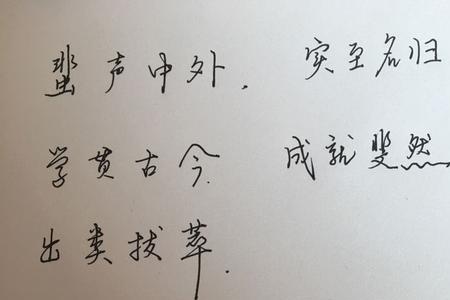 蜚声中外, 实至名归
学贯古今. 成就斐然
出类拔萃.